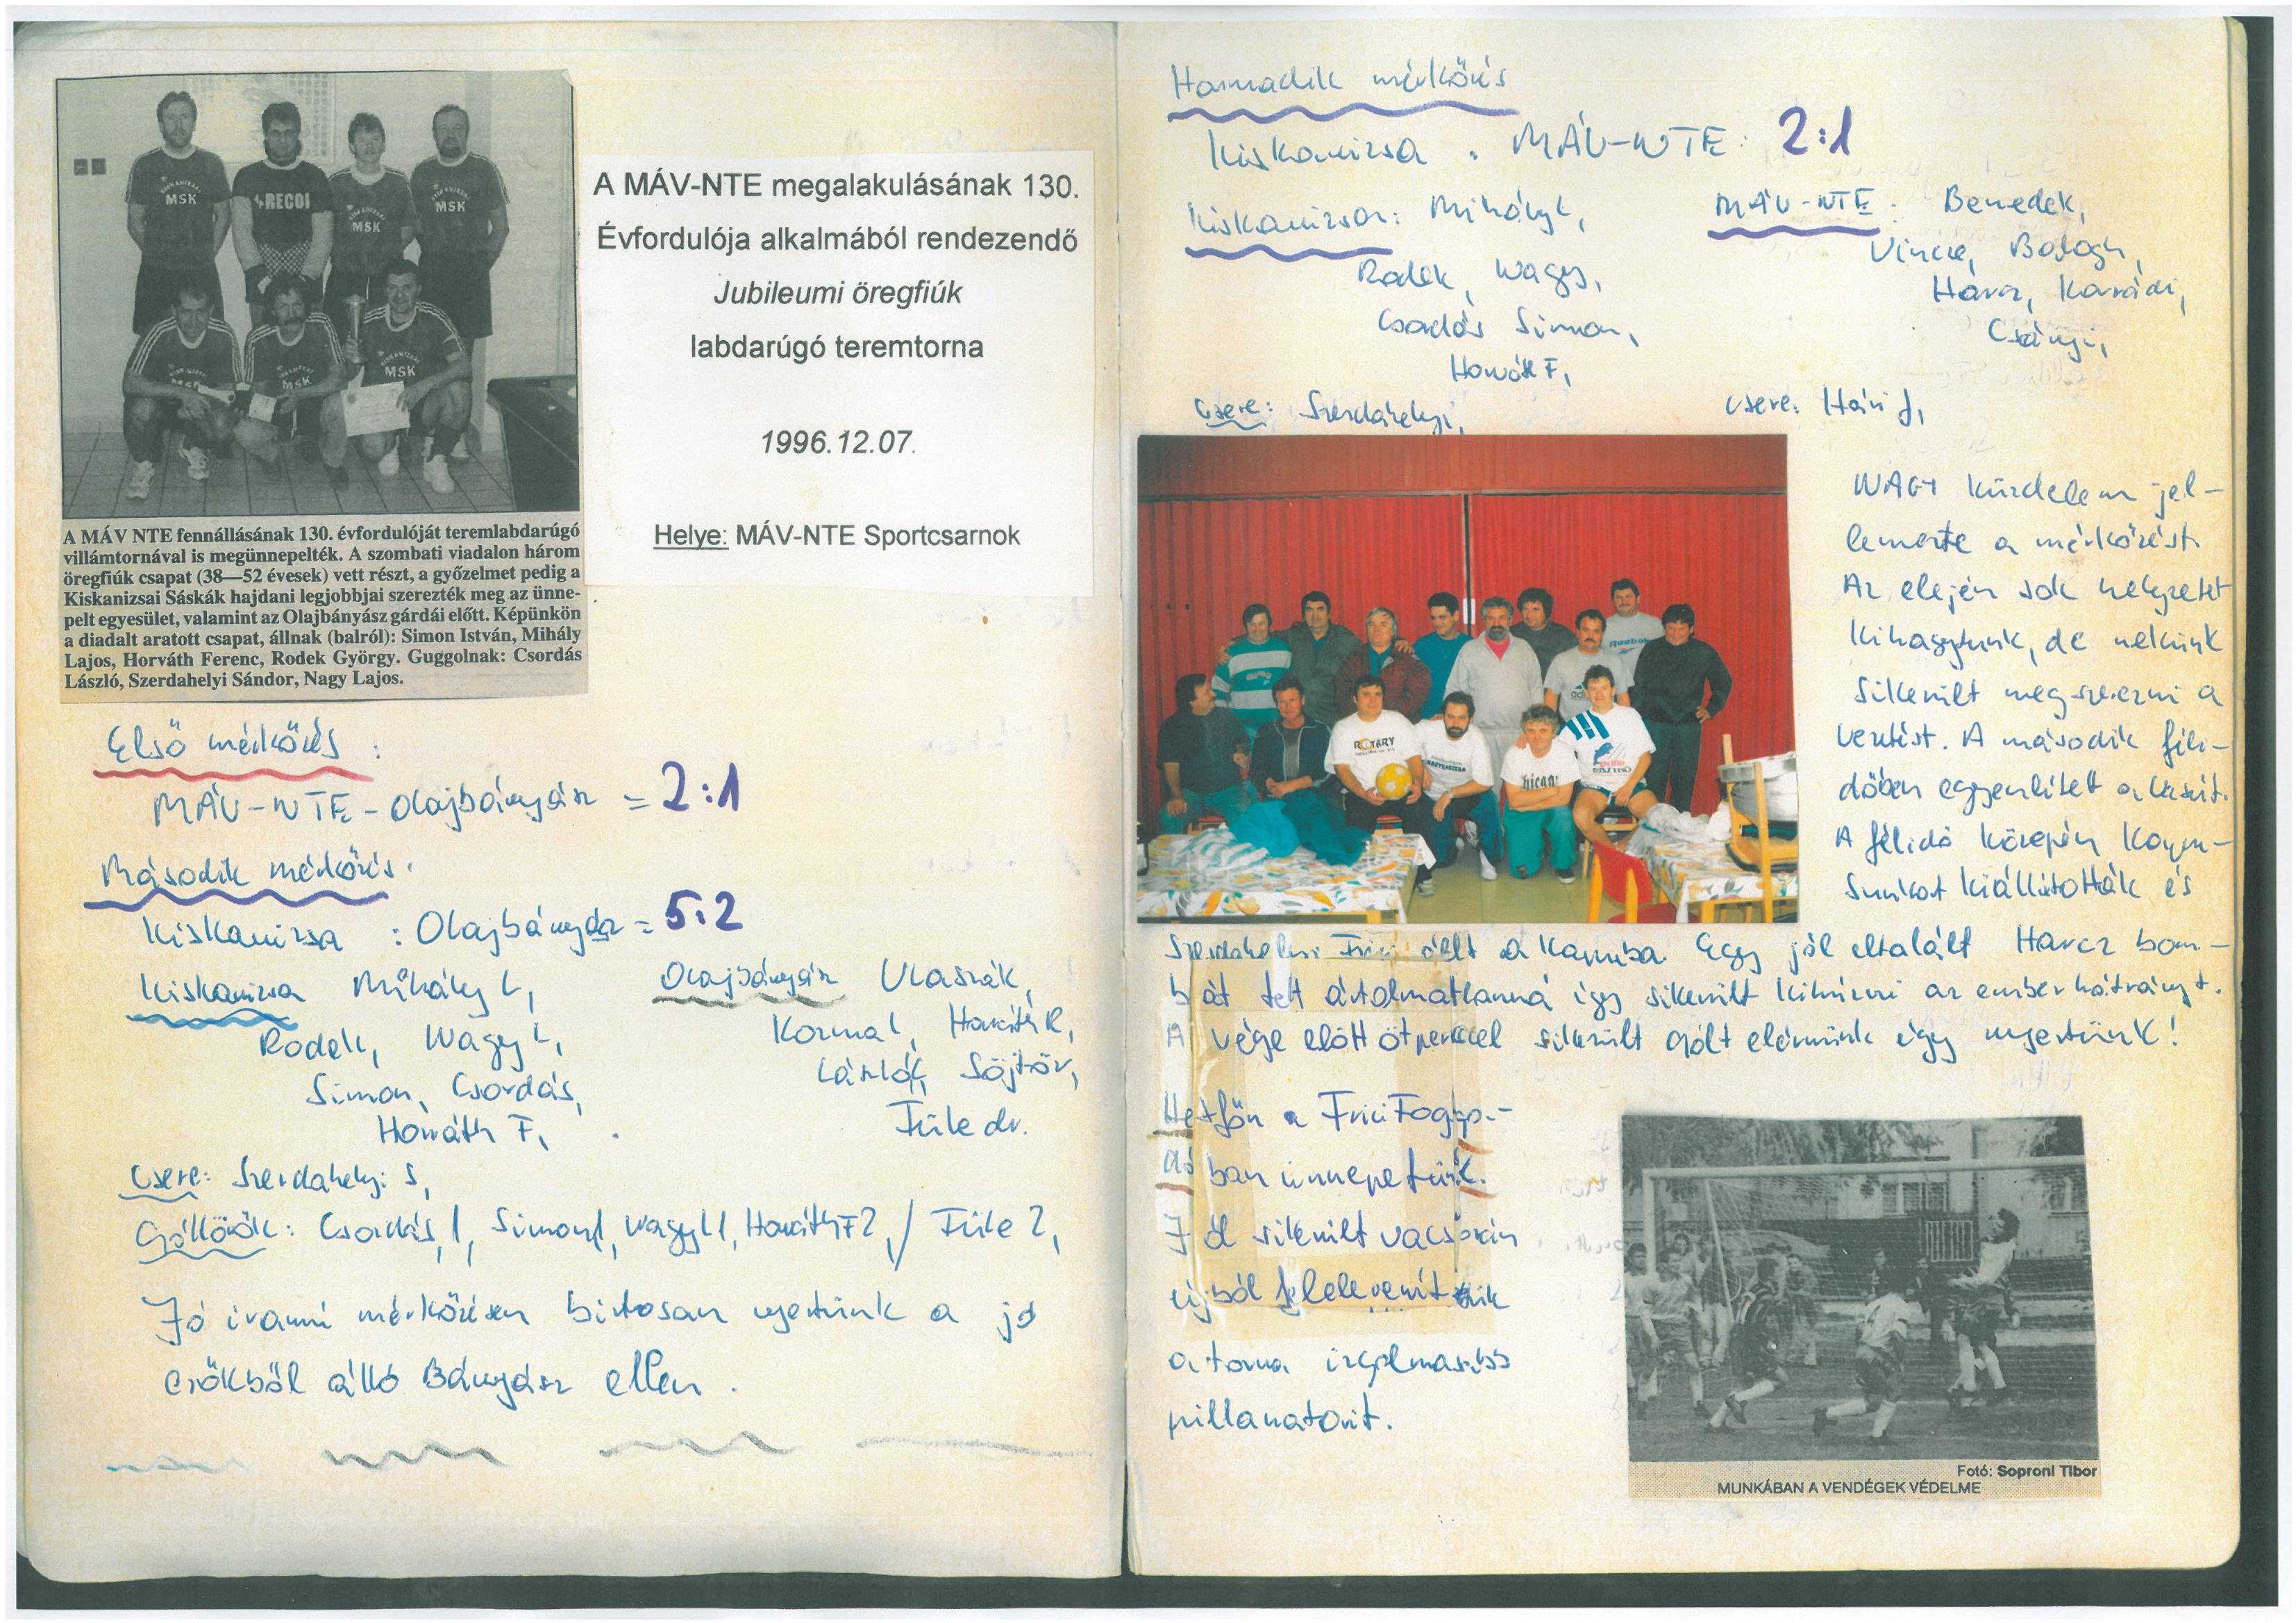 MSK
RECOI
MSK
MSK
MSK
MSK
MSK
A MÁV NTE fennállásának 130. évfordulóját teremlabdarúgó
villámtornával is megünnepelték. A szombati viadalon három
öregfiúk csapat (38—52 évesek) vett részt, a győzelmet pedig a
Kiskanizsai Sáskák hajdani legjobbjai szerezték meg az ünne-
pelt egyesület, valamint az Olajbányász gárdái előtt. Képünkön
a diadalt aratott csapat, állnak (balról): Simon István, Mihály
Lajos, Horváth Ferenc, Rodek György. Guggolnak: Csordás
László, Szerdahelyi Sándor, Nagy Lajos.
A MÁV-NTE megalakulásának 130.
Évfordulója alkalmából rendezendő
Jubileumi öregfiúk
labdarúgó teremtorna
1996.12.07.
Helye: MÁV-NTE Sportcsarnok
Első mérkőzés:
MÁV-NTE-Olajbányász = 2:1
Második mérkőzés.
Kiskanizsa : Olajbányász = 5:2
Kiskanizsa Mihály L,
Rodek, Nagy L,
Simon, Csordás,
Horváth F,
Olajbányász Vlaszák,
Horváth R,
László,
Füle dr.
Csere: Szerdahelyi S,
Góllövők: Csordás 1, Simon 1, Nagy L 1, Horváth F 2, / Füle 2,
Jó iramú mérkőzésen biztosan nyertünk a jó
erőkből álló Bányász ellen.
Harmadik mérkőzés
Kiskanizsa : MÁV-NTE: 2:1
Kiskanizsa: Mihály L,
Rodek, Nagy,
Csordás Simon,
Horváth F,
csere: Szerdahelyi,
MÁV-NTE: Benedek,
Vincze, Balogh,
Harcz, Karádi,
Csányi,
csere: Hári J,
ROTARY
Reebok
NAGY küzdelem jel-
lemezte a mérkőzést.
Az elején sok helyzetet
kihagytunk, de nekünk
sikerült megszerezni a
vezetést. A második féli-
dőben egyenlített a Vasút.
A félidő közepén kapu-
sunkat kiállították és
Szerdahelyi Frici állt a kapuba. Egy jól eltalált Harcz bom-
bát tett ártalmatlanná így sikerült kihúzni az emberhátrányt.
A vége előtt öt perccel sikerült gólt elérnünk így nyertünk!
Hetfőn a Frici Fogo-
dóban ünnepeltünk.
Jól sikerült vacsorán
újból felelevenítettük
a torna izgalmasabb
pillanatait.
Fotó: Soproni Tibor
MUNKÁBAN A VENDÉGEK VÉDELME